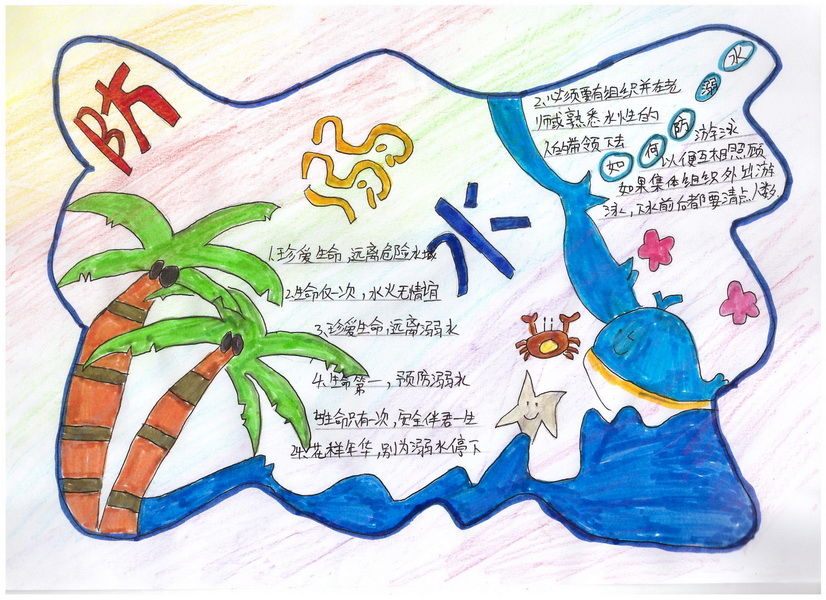 防
溺
水
1.珍爱生命,远离危险水域
2.生命仅一次,水火无情谊
3.珍爱生命,远离溺水
4.生命第一,预防溺水
5生命只有一次,安全伴君一生
24.花样年华,别为溺水停下
如何防溺水
2.必须要有组织并在老
师或熟悉水性的
人的带领下去
游泳
以便互相照顾
如果集体组织外出游
泳,下水前后都要清点人数